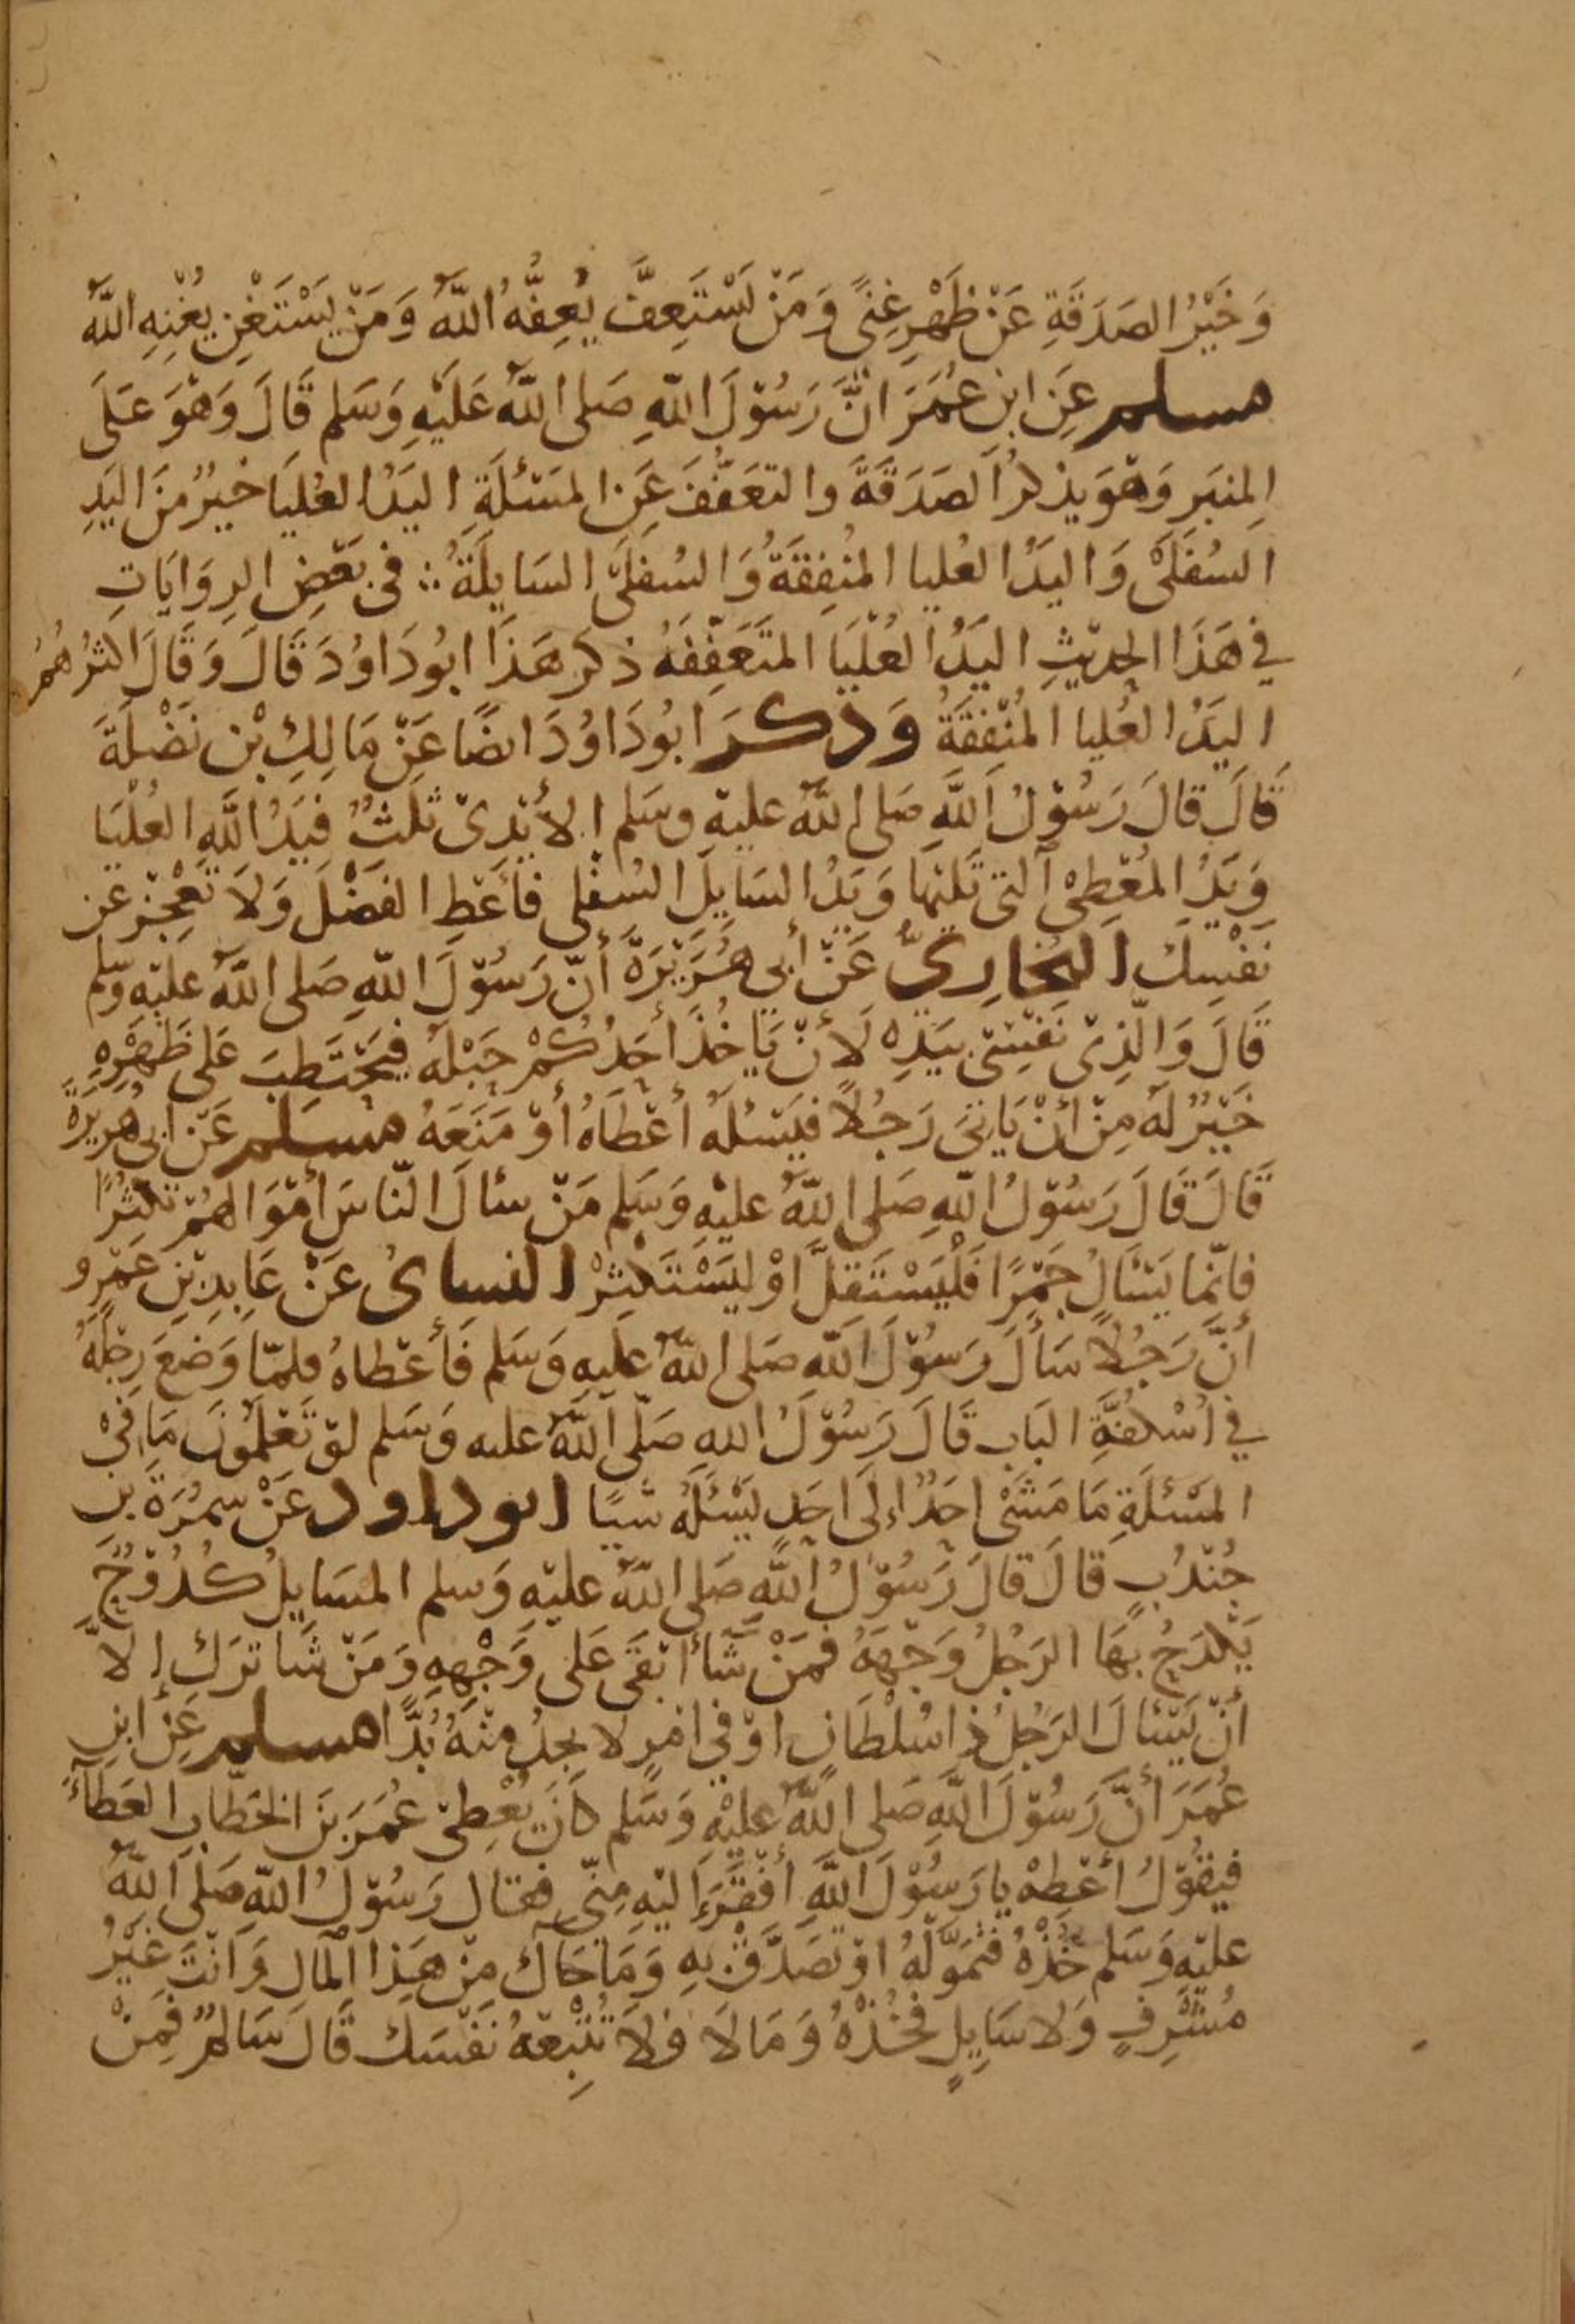 وَخَيْرُ الصَدَقَةِ عَنْ ظَهْرِ غِنىً وَمَنْ يَسْتَعِفَّ يُعِفُّهُ اللَّهُ وَمَنْ يَسْتَغْنِ يُغْنِهِ اللَّهُ
مسلم عَنِ ابنِ عُمَرَ انَّ رَسُوْلَ اللّهِ صَلى اللّهُ عَلَيْهِ وَسَلم قَالَ وَهْوَ عَلَى
المِنبَرِ وَهْوَ يذكرُ الصَدَقَةَ والتعَفّفَ عَنِ المسَئلَةِ اليَدُ العُليَا خيرٌ مِنَ اليَدِ
السُفلَىْ وَاليَدُ العُليا المُنفِقَةُ وَالسُفلَىَ السَايلَةُ ∴ فى بَعْضِ الرِوَايَاتِ
في هَذَا الحديْثِ اليَدُ العُلْيَا المتَعَفِّفَهُ ذكر هَذَا ابُودَاوُدَ قَالَ وَقَالَ اكثرُهُمُ
اليَدُ العُليا المُنْفِقَةُ وَذكَرَ ابُودَاوُدَ ايضًا عَنْ مَالِكِ بْن نَضْلَةَ
قَالَ قالَ رَسُوْلُ اللَّهِ صَلى اللَّهُ عليهِ وسَلم الأيْدِىْ ثَلثٌ فيَدُ اللَّهِ العُلْيَا
وَيَدُ المُعْطِىْ التى تَليْهَا وَيَدُ السَايِلِ السُفْلى فأعْطِ الفَضْلَ وَلَا تَعْجِزْ عَن
نَفْسِكَ البُخارِىُّ عَنْ أبى هُرَيْرَةَ أنّ رَسُوْلَ اللّهِ صَلى اللَّهُ عليْهِ وسّلم
قَالَ وَالّذِىْ نَفْسِىْ بيَدِهْ لَأَنْ يَاخُذَ أحَدُكُمْ حَبْلَهُ فيَحْتَطِبَ عَلى ظَهْرِهِ
خَيْرٌ لَهُ مِنْ أنْ يَاتِىَ رَجُلاً فيَسْئلَهُ أعْطَاهُ أوْ مَنَعَهُ مسلم عَنْ ابى هُرَيْرَةَ
قَالَ قَالَ رَسُوْلُ اللّهِ صَلى اللَّهُ عليْهِ وَسَلم مَنْ سئالَ النّاسَ أمْوَالهُمْ تكثُّرًا
فإنّمَا يَسْئَالُ جَمْرًا فَلْيَسْتَقلَّ اوْ ليَسْتَكثِرْ النساىُ عَنْ عَابِدِ بْنِ عَمْرِو
أنَّ رَجُلاً سَألَ رَسُوْلَ اللّهِ صَلى اللّهُ عليهِ وَسَلم فَأعْطاهُ فلمّا وَضَعَ رِجْلَهُ
في اُسْكفَّةِ البَابِ قَالَ رَسُوْلُ اللهِ صَلّى اللَّهُ عليه وَسَلم لوْ تَعْلَمُوْنَ مَا فِىْ
المَسْئلَةِ مَا مَشَىْ احَدٌ إلَى احَدٍ يَسْئَلُهُ شَيًا ابوداود عَنْ سمُرَةَ بْنِ
جُنْدُبٍ قالَ قالَ رَسُوْلُ اللَّهِ صَلى اللّهُ عليْهِ وَسلم المسَايِلُ كُدُوْحٌ
يَكْدَحُ بهَا الرَجُلُ وَجْهَهُ فمَنْ شَأَ ابْقَى عَلى وَجْهِهِ وَمَنْ شَا ترَكَ إلاّ
أنْ يَسْئالَ الرَجُلُ ذا سُلْطَانٍ اوْ فى امْرٍ لا يجدُ مِنْهُ بُدًّا مسلم عَنْ ابنِ
عُمَرَ أنَّ رَسُوْلَ اللَّهِ صَلى اللَّهُ عليْهِ وَسَّلم كَانَ يُعْطِىْ عُمَرَ بنَ الخطّابِ العَطَاءَ
فيَقُوْلُ أعْطِهْ يا رَسُوْلَ اللَّهِ أفْقَرَ إليْهِ مِنّى فقال رَسُوْلُ اللّهِ صَلى اللَّهُ
عليْهِ وَسَلم خُذْهُ فتَمَوّلْهُ اوْ تَصَدَّقْ بهِ وَمَا جَاكَ مِنْ هَذا المْال وَانْتَ غيْرُ
مُشْرِفٍ وَلا سَايِلٍ فَخُذْهُ وَمَا لَا فلاَ تُتْبِعْهُ نَفْسَك قَالَ سَالمٌ فمِنْ